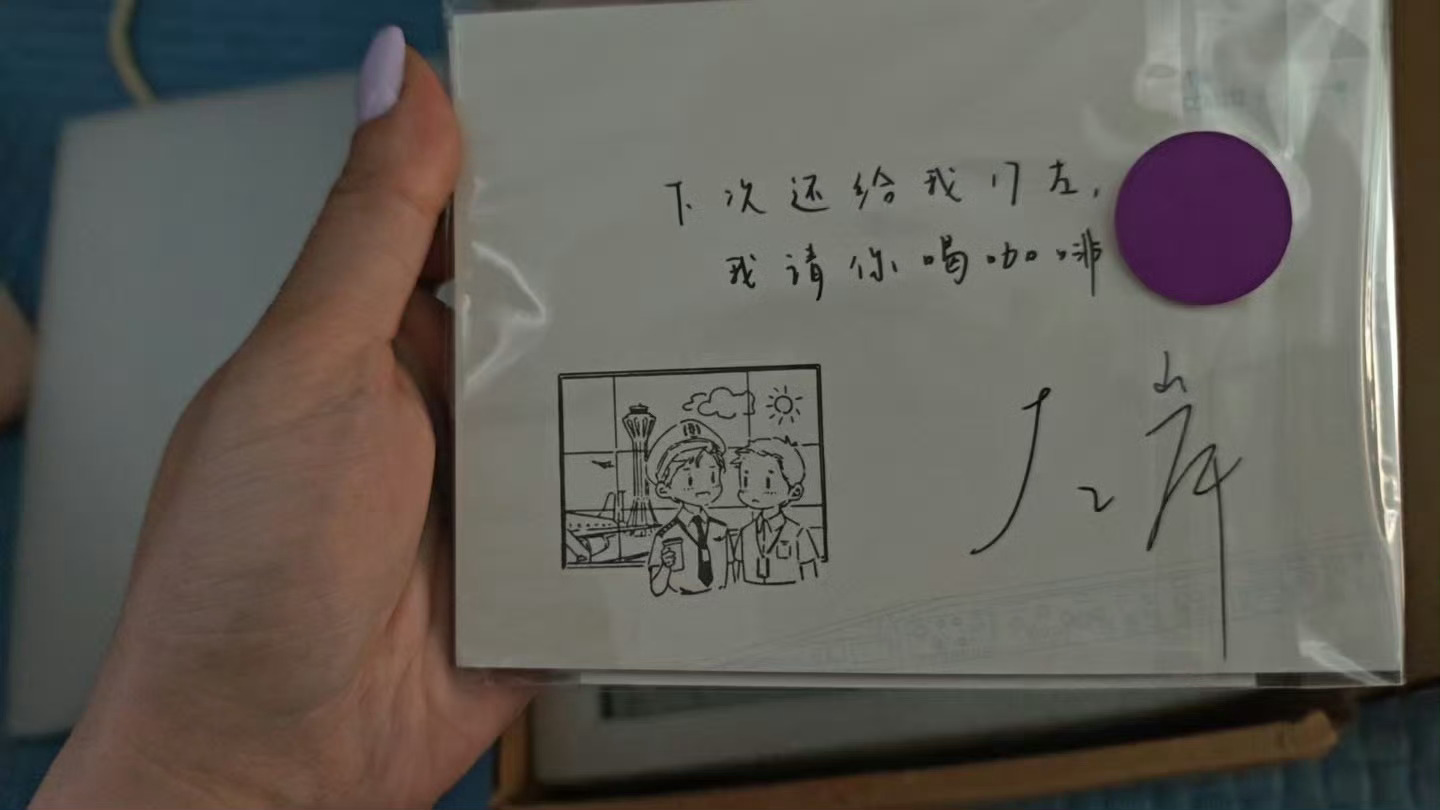 下次还给我们左,
我请你喝咖啡